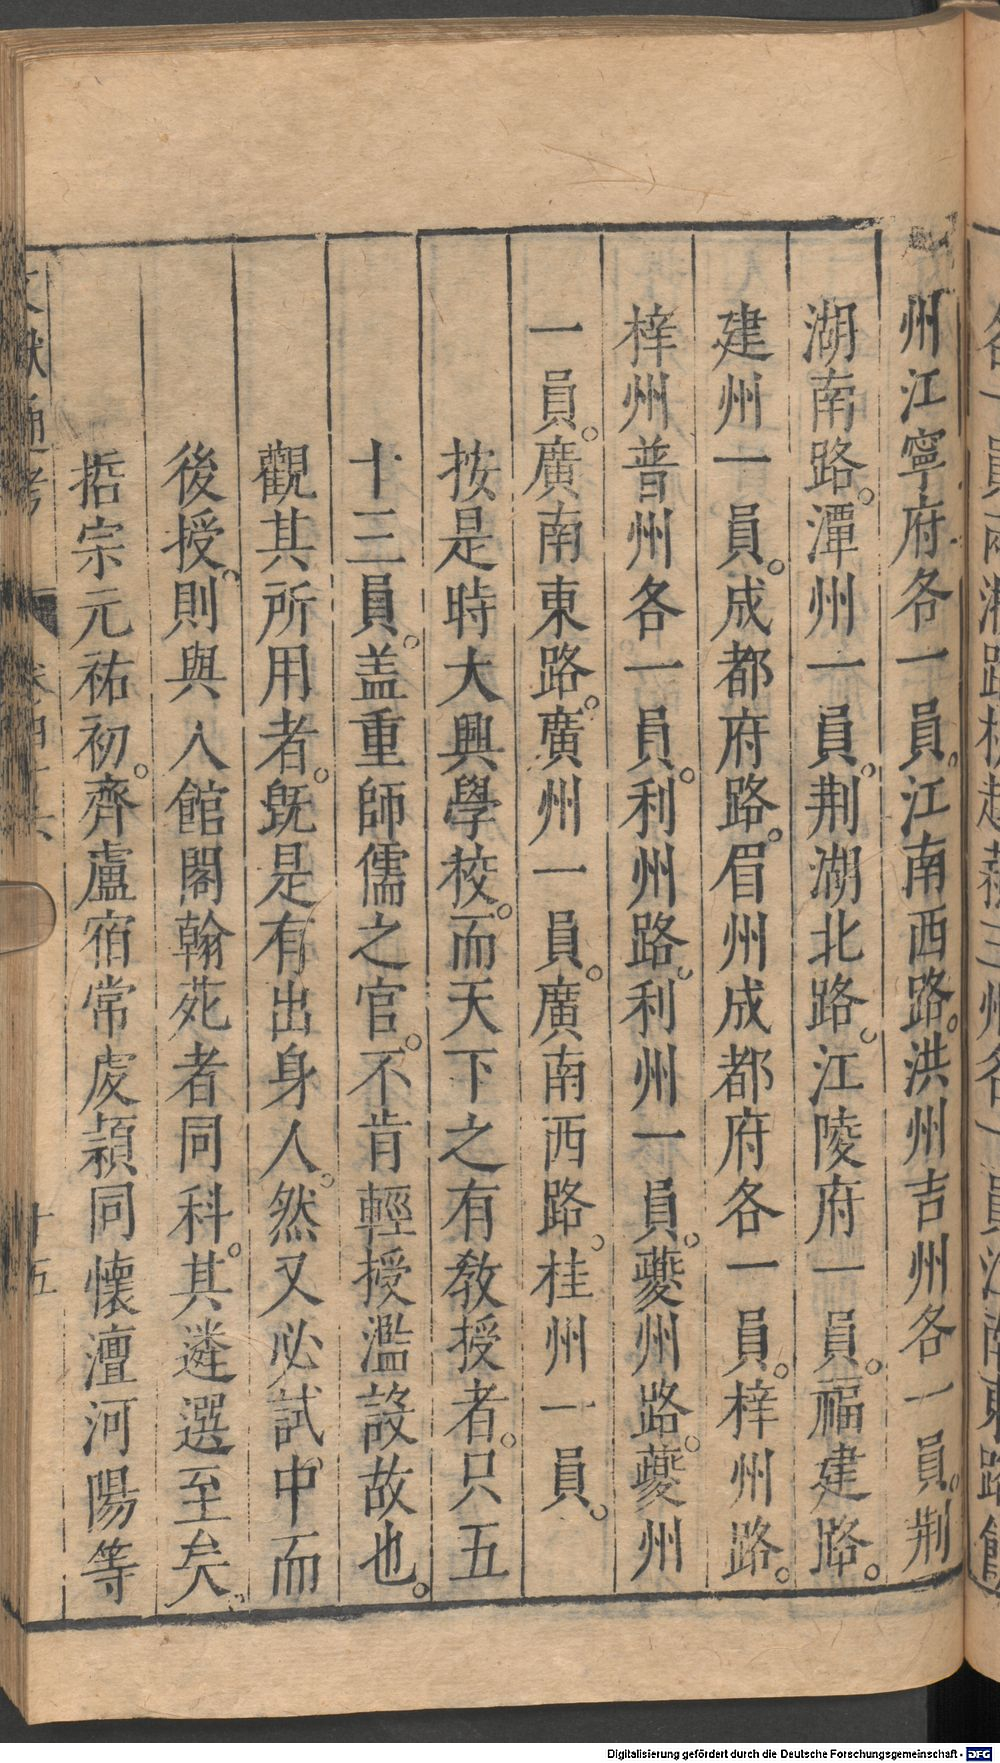 州江寧府各一員。江南西路。洪州吉州各一員。荆
湖南路。潭州一員。荆湖北路。江陵府一員。福建路。
建州一員。成都府路。眉州成都府各一員。梓州路。
梓州普州各一員。利州路。利州一員。夔州路。夔州
一員。廣南東路。廣州一員。廣南西路。桂州一員。
按是時大興學校。而天下之有敎授者。只五
十三員。盖重師儒之官。不肯輕授濫設故也。
觀其所用者。旣是有出身人。然又必試中而
後授。則與入館閣翰苑者同科。其遴選至矣。
哲宗元祐初。齊盧宿常虔頴同懷澶河陽等
文獻通考
卷四十六
十五
Digitalisierung gefördert durch die Deutsche Forschungsgemeinschaft - DFG